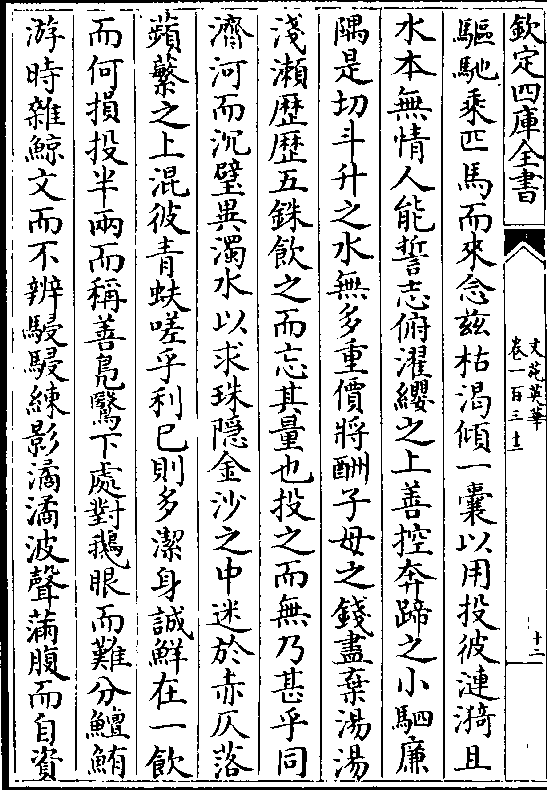 欽定四庫全書
文苑英華
卷一百三十二
十二
驅馳乘匹馬而來念茲枯渴傾一囊以用投彼漣漪且
水本無情人能誓志俯濯纓之上善控奔蹄之小駟廉
隅是切斗升之水無多重價將酬子母之錢盡棄湯湯
淺瀨歴歴五銖飲之而忘其量也投之而無乃甚乎同
濟河而沉璧異濁水以求珠隠金沙之中迷於赤仄落
蘋蘩之上混彼青蚨嗟乎利已則多潔身誠鮮在一飲
而何損投半兩而稱善鳬鷖下處對鵝眼而難分鱣鮪
游時雜鯨文而不辨駸駸練影潏潏波聲滿腹而自資